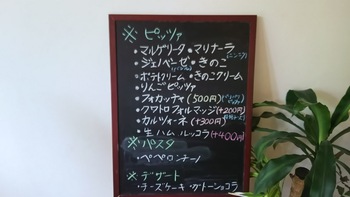 ※ピッツァ
・マルゲリータ ・マリナーラ
・ジェノベーゼ ・きのこ
・ポテトクリーム ・きのこクリーム
・りんごピッツァ
・フォカッチァ (500円)
・クワトロフォルマッジ (+200円)
・カルツォーネ (+300円)
・生ハムルッコラ (+400円)
※パスタ
・ペペロンチーノ
※デザート
・チーズケーキ ・ガトーショコラ